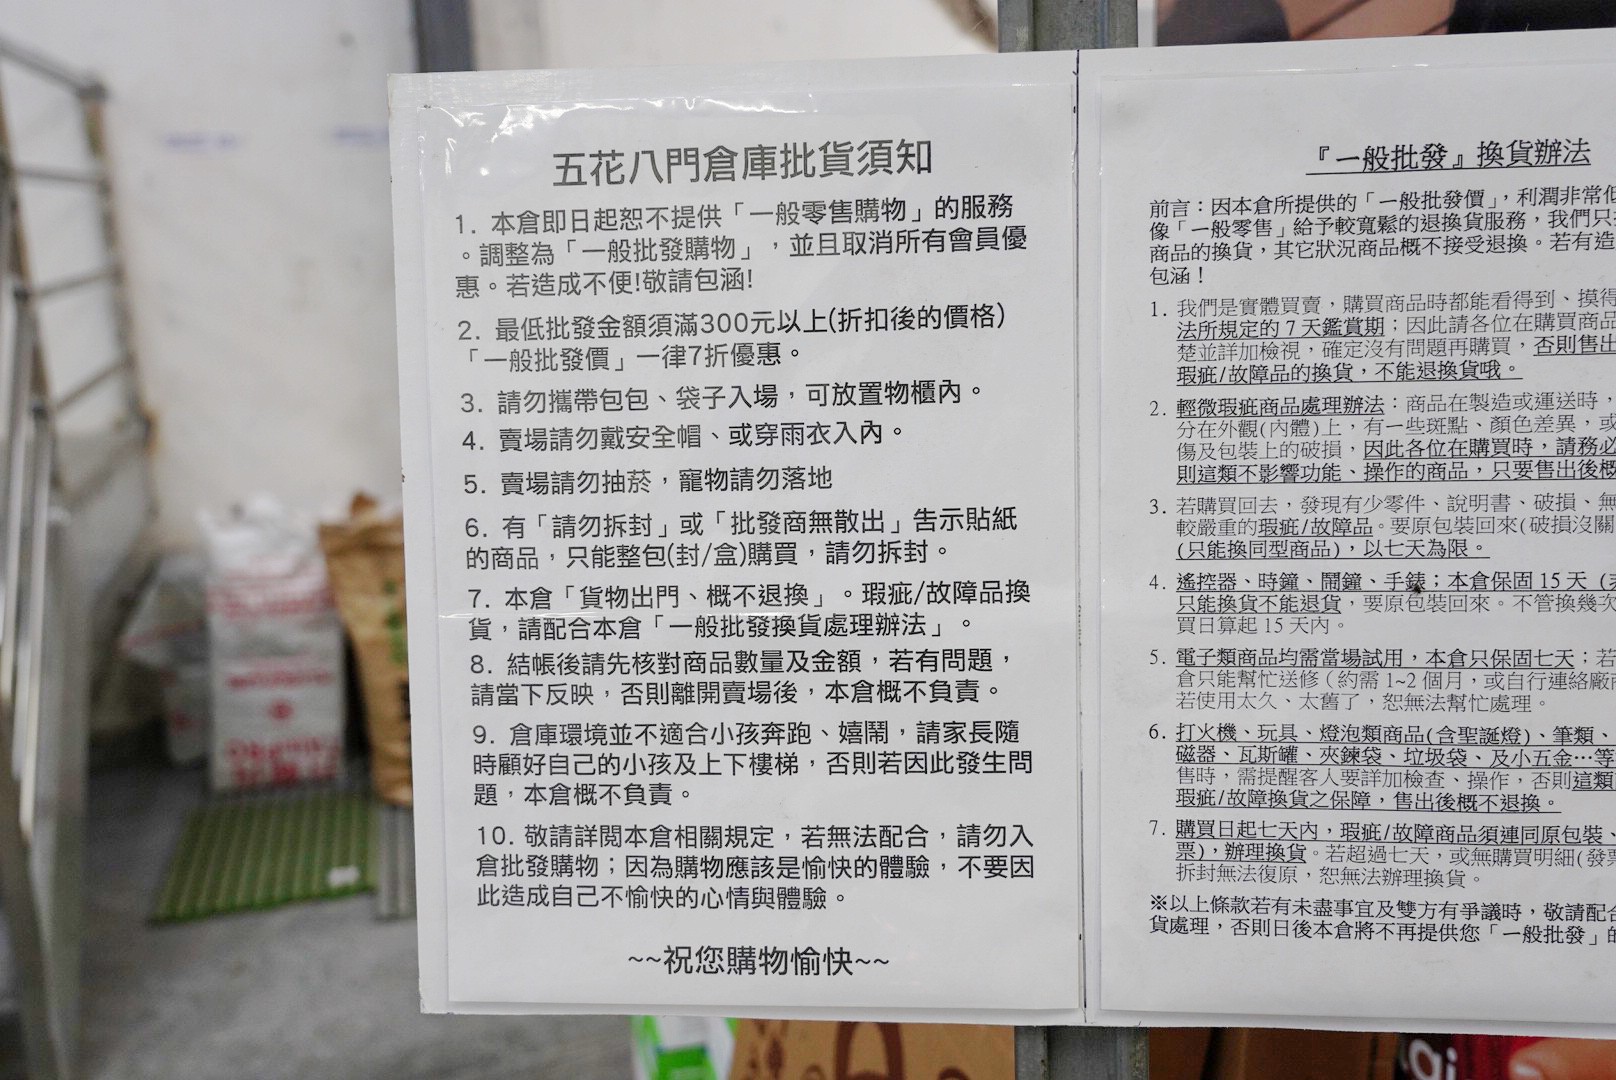 五花八門倉庫批貨須知
1. 本倉即日起恕不提供「一般零售購物」的服務
。調整為「一般批發購物」，並且取消所有會員優
惠。若造成不便!敬請包涵!
2. 最低批發金額須滿300元以上(折扣後的價格)
「一般批發價」一律7折優惠。
3. 請勿攜帶包包、袋子入場，可放置物櫃內。
4. 賣場請勿戴安全帽、或穿雨衣入內。
5. 賣場請勿抽菸，寵物請勿落地
6. 有「請勿拆封」或「批發商無散出」告示貼紙
的商品，只能整包(封/盒)購買，請勿拆封。
7. 本倉「貨物出門、概不退換」。瑕疵/故障品換
貨，請配合本倉「一般批發換貨處理辦法」。
8. 結帳後請先核對商品數量及金額，若有問題，
請當下反映，否則離開賣場後，本倉概不負責。
9. 倉庫環境並不適合小孩奔跑、嬉鬧，請家長隨
時顧好自己的小孩及上下樓梯，否則若因此發生問
題，本倉概不負責。
10. 敬請詳閱本倉相關規定，若無法配合，請勿入
倉批發購物；因為購物應該是愉快的體驗，不要因
此造成自己不愉快的心情與體驗。
~~祝您購物愉快~~
『一般批發』換貨辦法
前言：因本倉所提供的「一般批發價」，利潤非常低
像「一般零售」給予較寬鬆的退換貨服務，我們只
商品的換貨，其它狀況商品概不接受退換。若有造
包涵！
1. 我們是實體買賣，購買商品時都能看得到、摸得
法所規定的 7 天鑑賞期；因此請各位在購買商品
楚並詳加檢視，確定沒有問題再購買，否則售出
瑕疵/故障品的換貨，不能退換貨哦。
2. 輕微瑕疵商品處理辦法：商品在製造或運送時，
分在外觀(內體)上，有一些斑點、顏色差異，或
傷及包裝上的破損，因此各位在購買時，請務必
則這類不影響功能、操作的商品，只要售出後概
3. 若購買回去，發現有少零件、說明書、破損、無
較嚴重的瑕疵/故障品。要原包裝回來(破損沒關
(只能換同型商品)，以七天為限。
4. 遙控器、時鐘、鬧鐘、手錶；本倉保固 15 天 (
只能換貨不能退貨，要原包裝回來。不管換幾次
買日算起 15 天內。
5. 電子類商品均需當場試用，本倉只保固七天；若
倉只能幫忙送修 (約需 1~2 個月，或自行連絡廠商
若使用太久、太舊了，恕無法幫忙處理。
6. 打火機、玩具、燈泡類商品(含聖誕燈)、筆類、
磁器、瓦斯罐、夾鍊袋、垃圾袋、及小五金…等
售時，需提醒客人要詳加檢查、操作，否則這類
瑕疵/故障換貨之保障，售出後概不退換。
7. 購買日起七天內，瑕疵/故障商品須連同原包裝、
票)，辦理換貨。若超過七天，或無購買明細(發票
拆封無法復原，恕無法辦理換貨。
※以上條款若有未盡事宜及雙方有爭議時，敬請配合
貨處理，否則日後本倉將不再提供您「一般批發」的